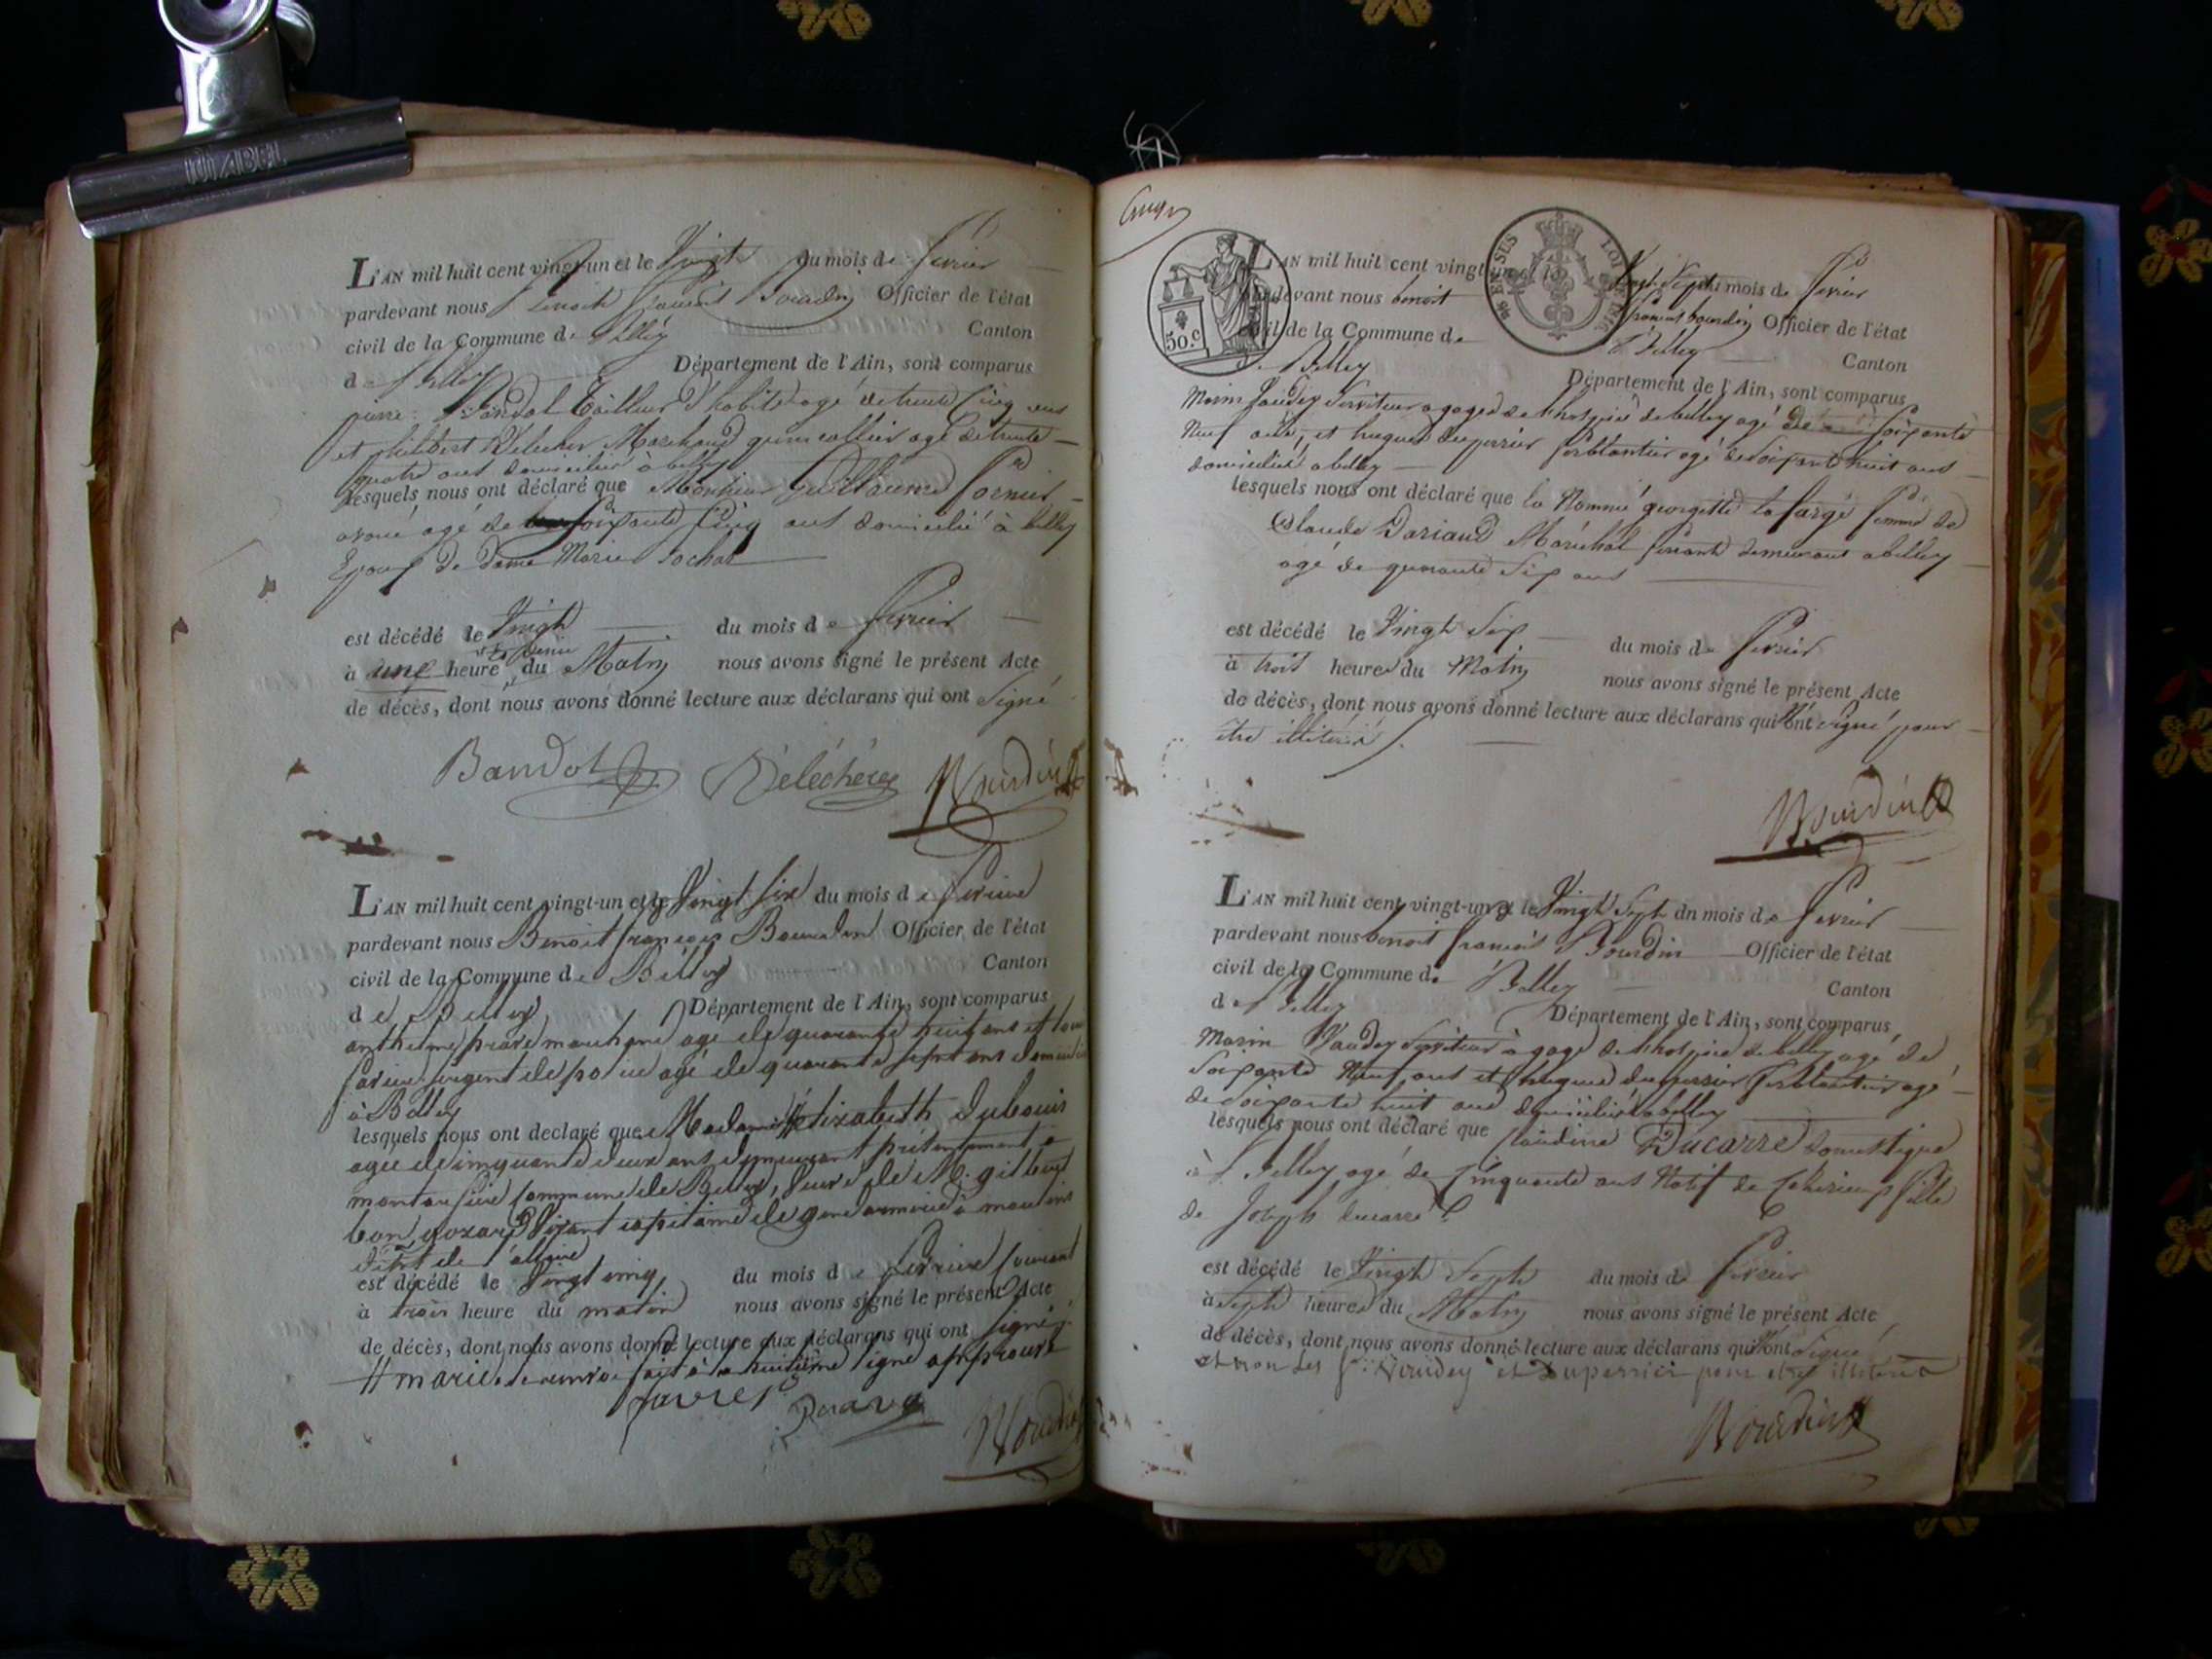 L'AN mil huit cent vingt-un et le Vingt du mois de fevrier
pardevant nous Benoit francois Bourdin Officier de l'état
civil de la Commune de Belley Canton
de Belley Département de l'Ain, sont comparus
pierre Bandol tailleur d'habits agé de trente cinq ans
et philibert Marchand agé de trente
quatre ans domiciliés à belley
lesquels nous ont déclaré que Monsieur Guillaume fornier
avoué agé de soixante cinq ans domicilié à belley
Epoux de dame Marie Sochat
est décédé le Vingt du mois de fevrier
à une heure et demie du Matin nous avons signé le présent Acte
de décès, dont nous avons donné lecture aux déclarans qui ont signé
Bandol Délechère Bourdin
L'AN mil huit cent vingt-un et le Vingt six du mois de fevrier
pardevant nous Benoit françois Bourdin Officier de l'état
civil de la Commune de Belley Canton
de Belley Département de l'Ain, sont comparus
anthelme prave marchand agé de quarante huit ans et
favier sergent de police agé de quarante sept ans domicilié
à Belley
lesquels nous ont declaré que Madame # Elizabeth dubouis
agée de cinquante deux ans demeurant présentement à
commune de Belley, veuve de M. gilbert
bon vivant capitaine de gendarmerie à moulins
dépt de l'allier
est décédé le Vingt cinq du mois de fevrier courant
à trois heure du matin nous avons signé le présent Acte
de décès, dont nous avons donné lecture aux déclarans qui ont signé
# marie. le renvoi fait à la huitième ligne approuvé
favier Prave Bourdin
50.c
LOI DE 1816
L'AN mil huit cent vingt-un et le Vingt Sept du mois de fevrier
pardevant nous benoit francois bourdin Officier de l'état
civil de la Commune de Belley Canton
de Belley Département de l'Ain, sont comparus
Marin Vaudey Serviteur a gages de l'hospice de belley agé de soixante
Neuf ans, et hugues duperrier ferblantier agé de soixante huit ans
domiciliés a belley
lesquels nous ont déclaré que la Nommé georgette lafarge femme de
Claude Dariaud Maréchal ferrant demeurant a belley
agé de quarante six ans
est décédé le Vingt Six du mois de fevrier
à trois heures du Matin nous avons signé le présent Acte
de décès, dont nous avons donné lecture aux déclarans qui n'ont signé pour
être illitérés
Bourdin
L'AN mil huit cent vingt-un et le Vingt Sept du mois de fevrier
pardevant nous benoit francois Bourdin Officier de l'état
civil de la Commune de Belley Canton
de Belley Département de l'Ain, sont comparus
Marin Vaudey Serviteur à gage de l'hospice de belley agé de
Soixante Neuf ans et hugues duperrier ferblantier agé
de soixante huit ans domiciliés a belley
lesquels nous ont déclaré que Claudine Ducarre domestique
à Belley agé de Cinquante ans Natif de fille
de Joseph ducarre
est décédé le Vingt Sept du mois de fevrier
à Sept heures du Matin nous avons signé le présent Acte
de décès, dont nous avons donné lecture aux déclarans qui n'ont Signé
et non les Srs Vaudey et Duperrier pour etre illiterés
Bourdin